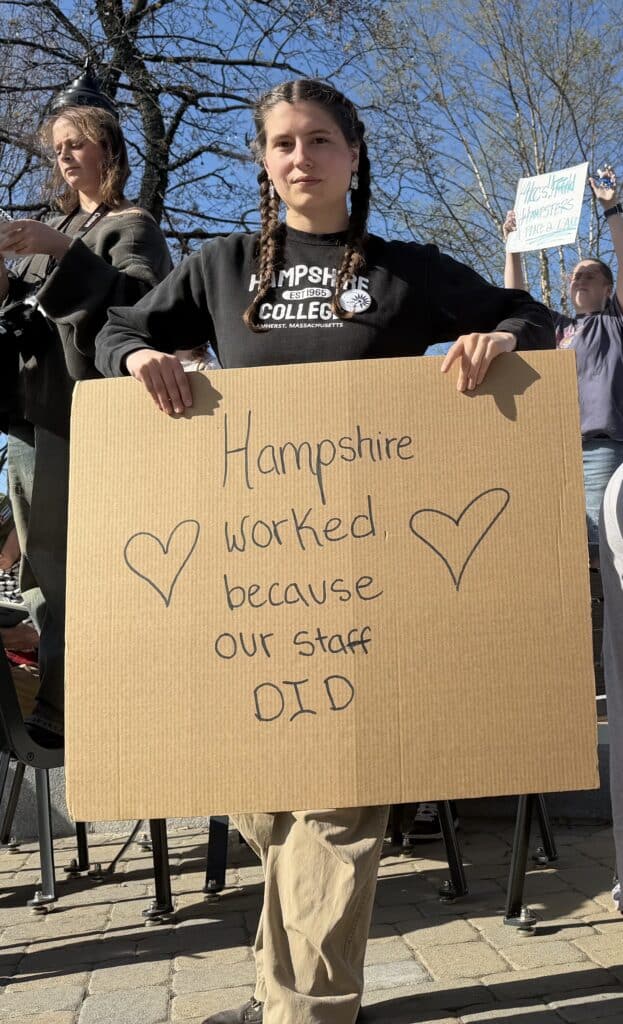 HAMPSHIRE
EST 1965
COLLEGE
AMHERST, MASSACHUSETTS
HAMPSTERS
Hampshire
worked
because
our staff
DID